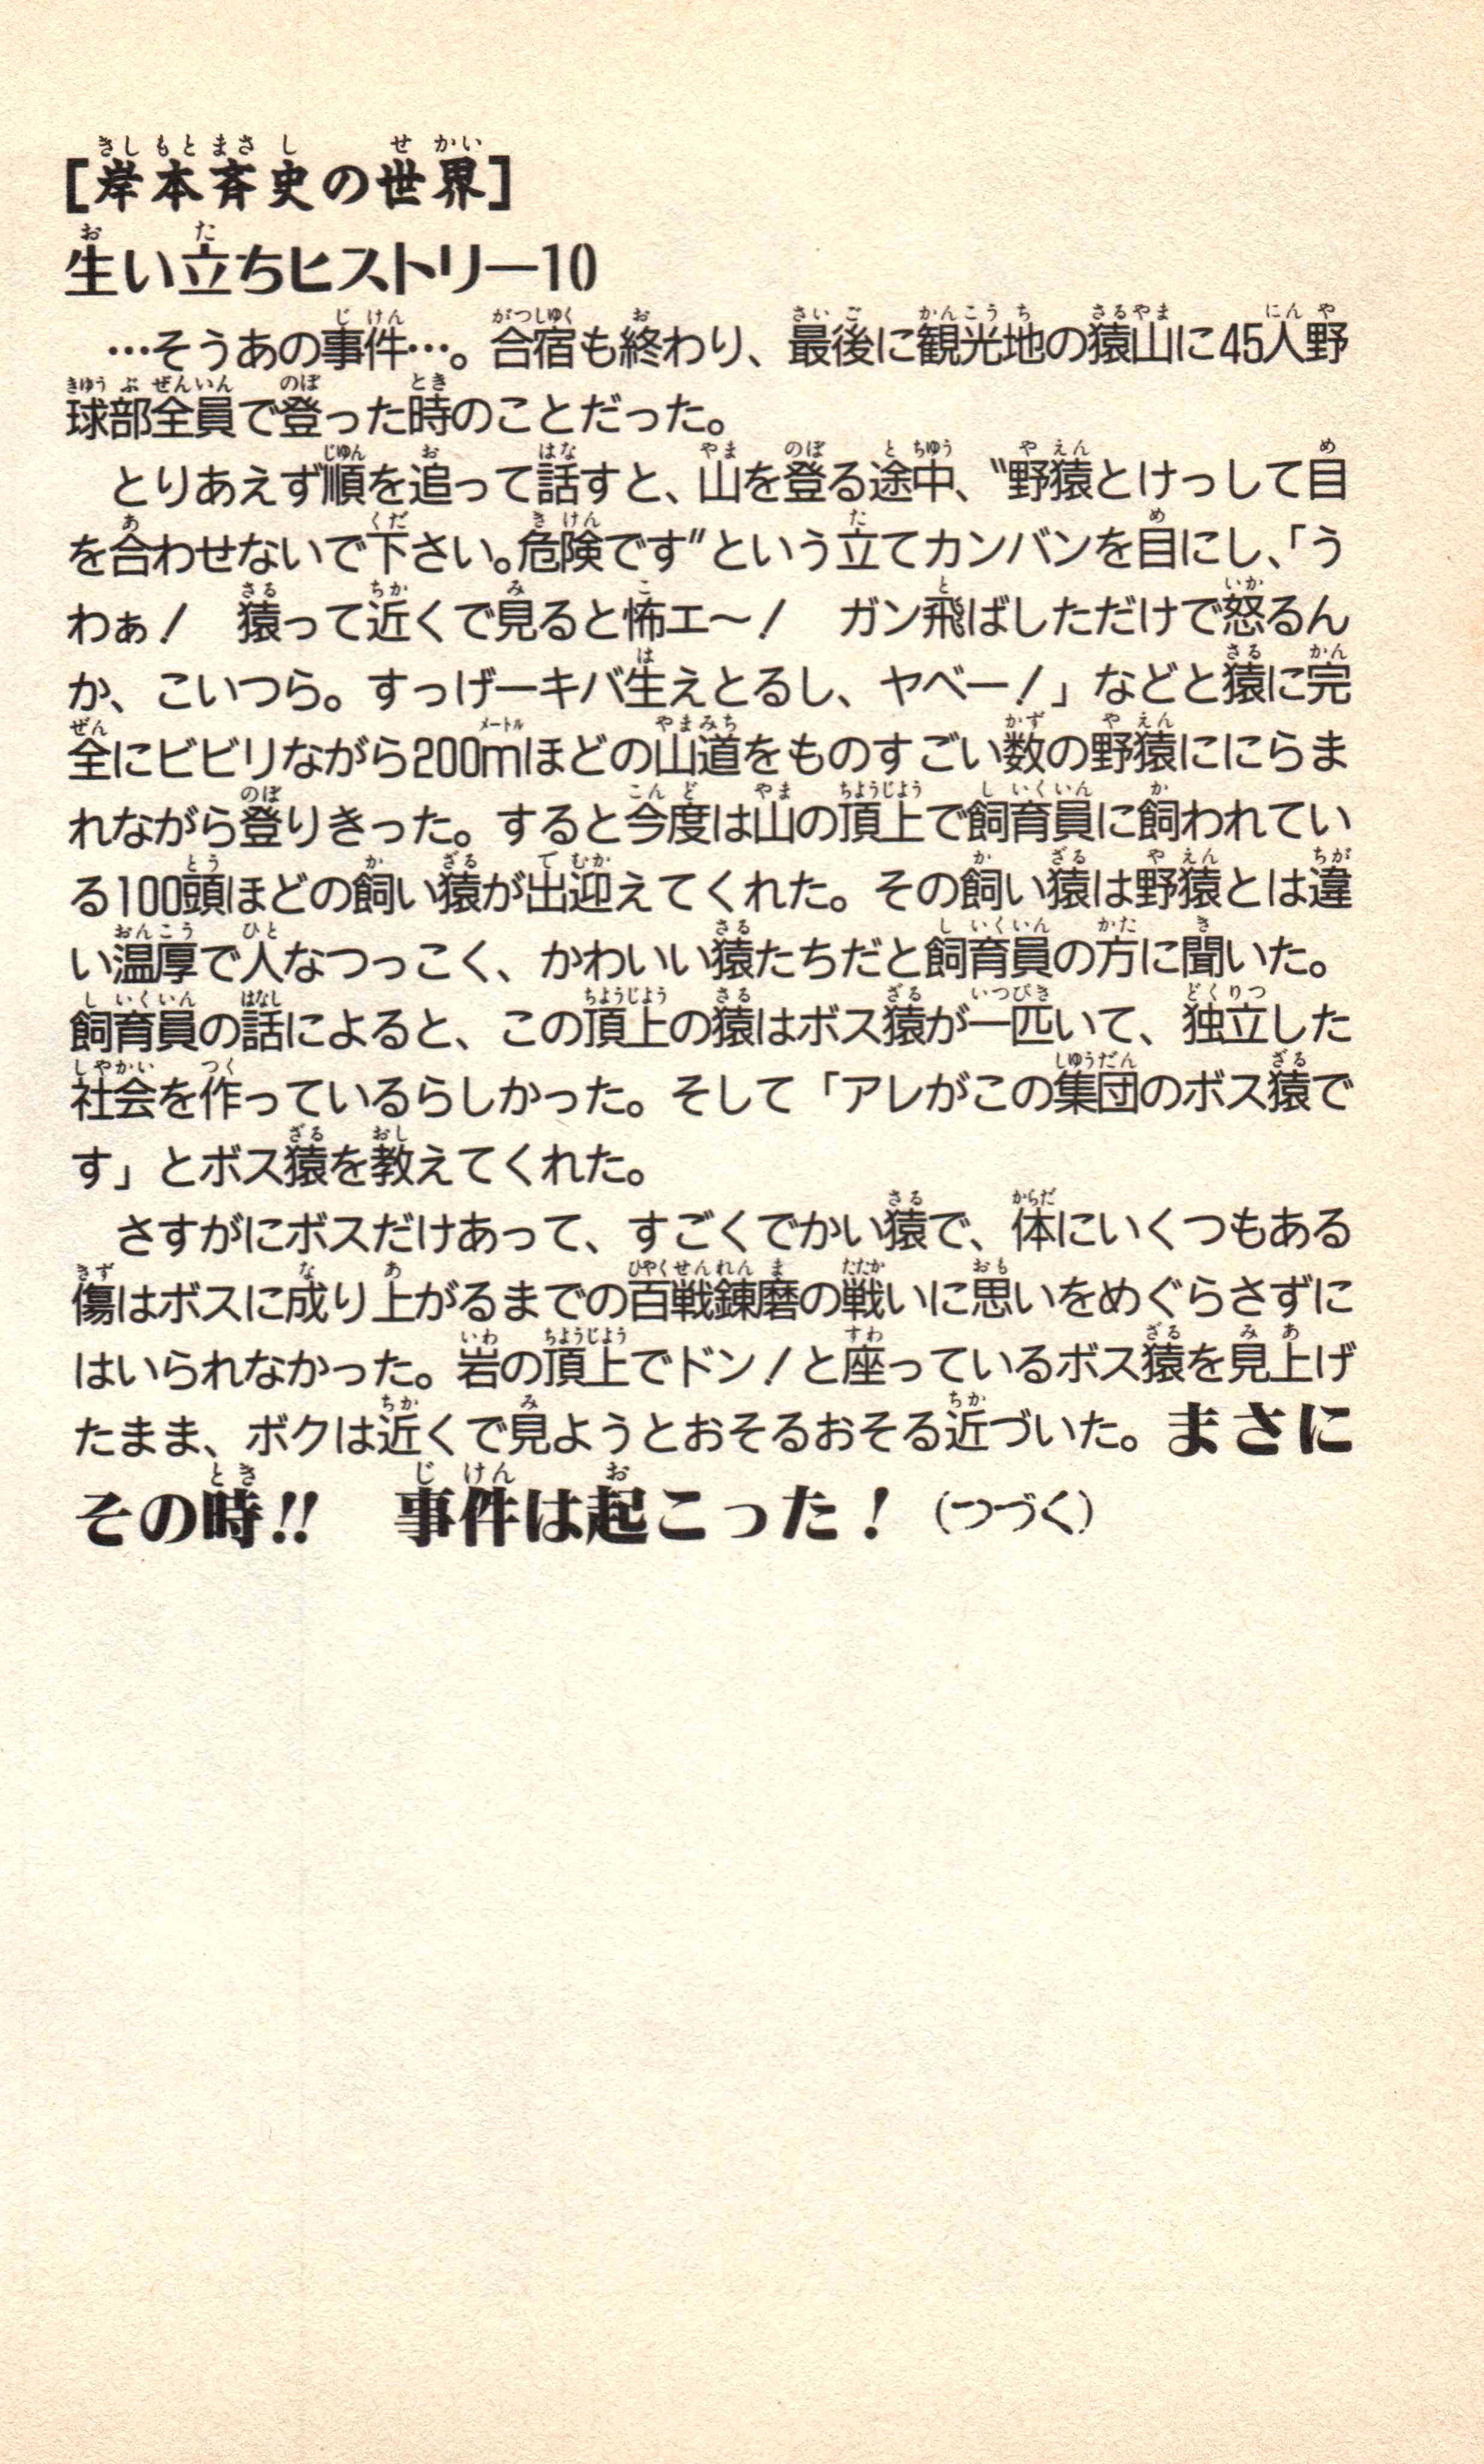 [岸本斉史の世界]
生い立ちヒストリー10
…そうあの事件…。合宿も終わり、最後に観光地の猿山に45人野
球部全員で登った時のことだった。
とりあえず順を追って話すと、山を登る途中、〝野猿とけっして目
を合わせないで下さい。危険です〟という立てカンバンを目にし、「う
わぁ！　猿って近くで見ると怖エ〜！　ガン飛ばしただけで怒るん
か、こいつら。すっげーキバ生えとるし、ヤベー！」などと猿に完
全にビビリながら200mほどの山道をものすごい数の野猿ににらま
れながら登りきった。すると今度は山の頂上で飼育員に飼われてい
る100頭ほどの飼い猿が出迎えてくれた。その飼い猿は野猿とは違
い温厚で人なつっこく、かわいい猿たちだと飼育員の方に聞いた。
飼育員の話によると、この頂上の猿はボス猿が一匹いて、独立した
社会を作っているらしかった。そして「アレがこの集団のボス猿で
す」とボス猿を教えてくれた。
さすがにボスだけあって、すごくでかい猿で、体にいくつもある
傷はボスに成り上がるまでの百戦錬磨の戦いに思いをめぐらさずに
はいられなかった。岩の頂上でドン！と座っているボス猿を見上げ
たまま、ボクは近くで見ようとおそるおそる近づいた。まさに
その時!!　事件は起こった！（つづく）